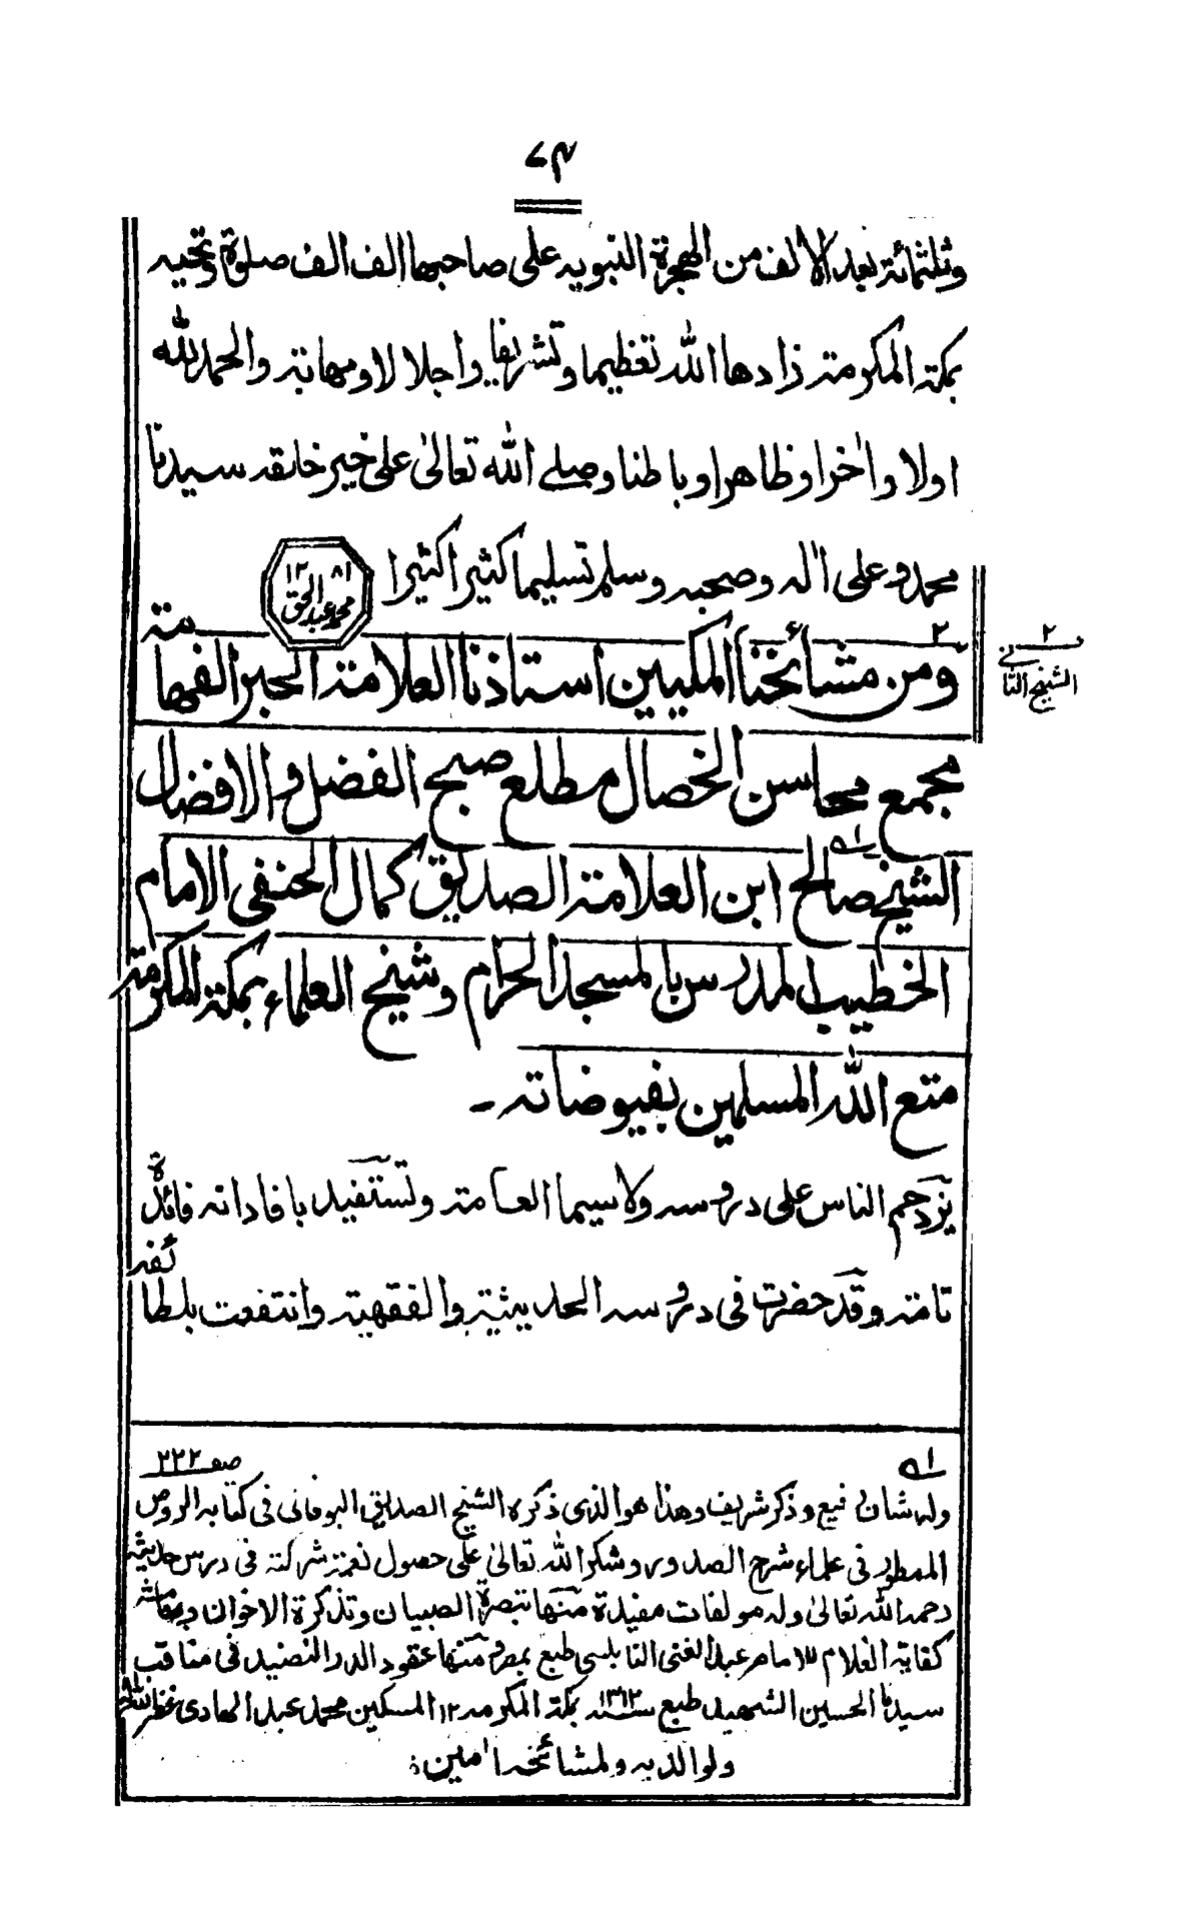 ٧٣
وثلثمائة بعد الالف من الهجرة النبويه على صاحبها الف الف صلوة وتحيه
بمكة المكرمة زادها الله تعظيما وتشريفا واجلالا ومهابة والحمد لله
اولا واٰخرا وظاهرا وباطنا وصلى الله تعالىٰ على خير خلقه سيدنا
محمد وعلى اٰله وصحبه وسلم تسليما كثيرا كثيرا
١٢ ٨١
محمد عبد الحق
٢
الشيخ الثانى
٢
ومن مشائخنا المكيين استاذنا العلامة الحبر الفهامة
مجمع محاسن الخصال مطلع صبح الفضل والافضال
الشيخ صالح ١ه ابن العلامة الصديق كمال الحنفى الامام
الخطيب المدرس بالمسجد الحرام وشيخ العلماء بمكة المكرمة
متع الله المسلمين بفيوضاته ـ
يزدحم الناس على دروسه ولا سيما العامة وتستفيد بافاداته فائدة
تامة وقد حضرت فى دروسه الحديثية والفقهية وانتفعت بلطائفه
١ه
وله شان رفيع وذكر شريف وهذا هو الذى ذكره الشيخ الصديق البوفانى فى كتابه الروض صفـ ٢٢٢
الممطور فى علماء شرح الصدور وشكر الله تعالىٰ على حصول نعمة شركته فى درس حديثه
رحمه الله تعالىٰ وله مولفات مفيدة منها تبصرة الصبيان وتذكرة الاخوان
كفاية الغلام للامام عبد الغنى النابلسى طبع بمصر ومنها عقود الدر النضيد فى مناقب
سيدنا الحسين الشهيد طبع سنه ١٣١٢ بمكة المكرمه ١٢ المسكين محمد عبد الهادى غفر الله له
ولوالديه ولمشائخه اٰمين: